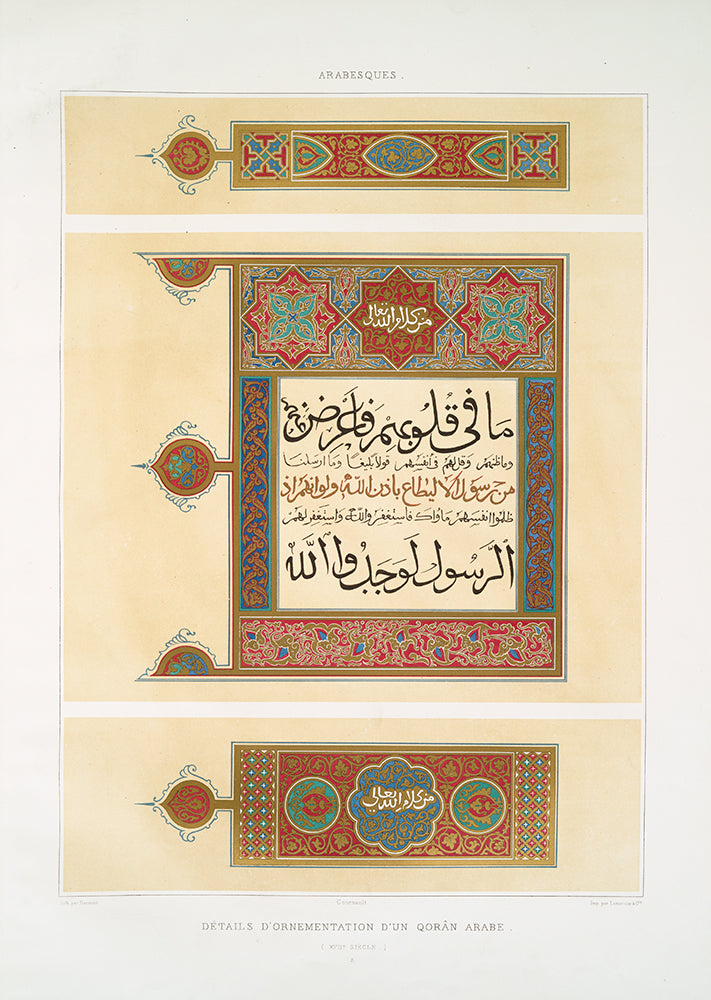 ARABESQUES .
من كلام الله تعالى
ما فى قلوبهم فاعرض
وقلهم فى انفسهم قولا بليغا وما ارسلنا
من رسول الا ليطاع باذن الله ولو انهم اذ
ظلموا انفسهم فاستغفروا الله واستغفر لهم
الرسول لوجدوا الله
من كلام الله تعالى
Lith. par
Imp. par Lemercier & Cie
DÉTAILS D'ORNEMENTATION D'UN QORÂN ARABE .
SIÈCLE . )